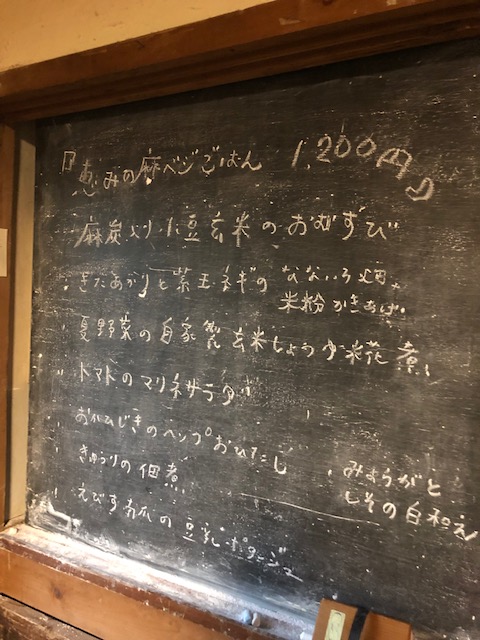 『恵みの麻ベジごはん 1,200円』
麻炭入り小豆玄米のおむすび
・きたあかりと紫玉ネギの なないろ畑
米粉かきあげ
・夏野菜の自家製玄米しょうゆ糀煮
・トマトのマリネサラダ
・おかひじきのヘンプおひたし
・きゅうりの佃煮
・えびす南瓜の豆乳ポタージュ
・みょうがと
しその白和え